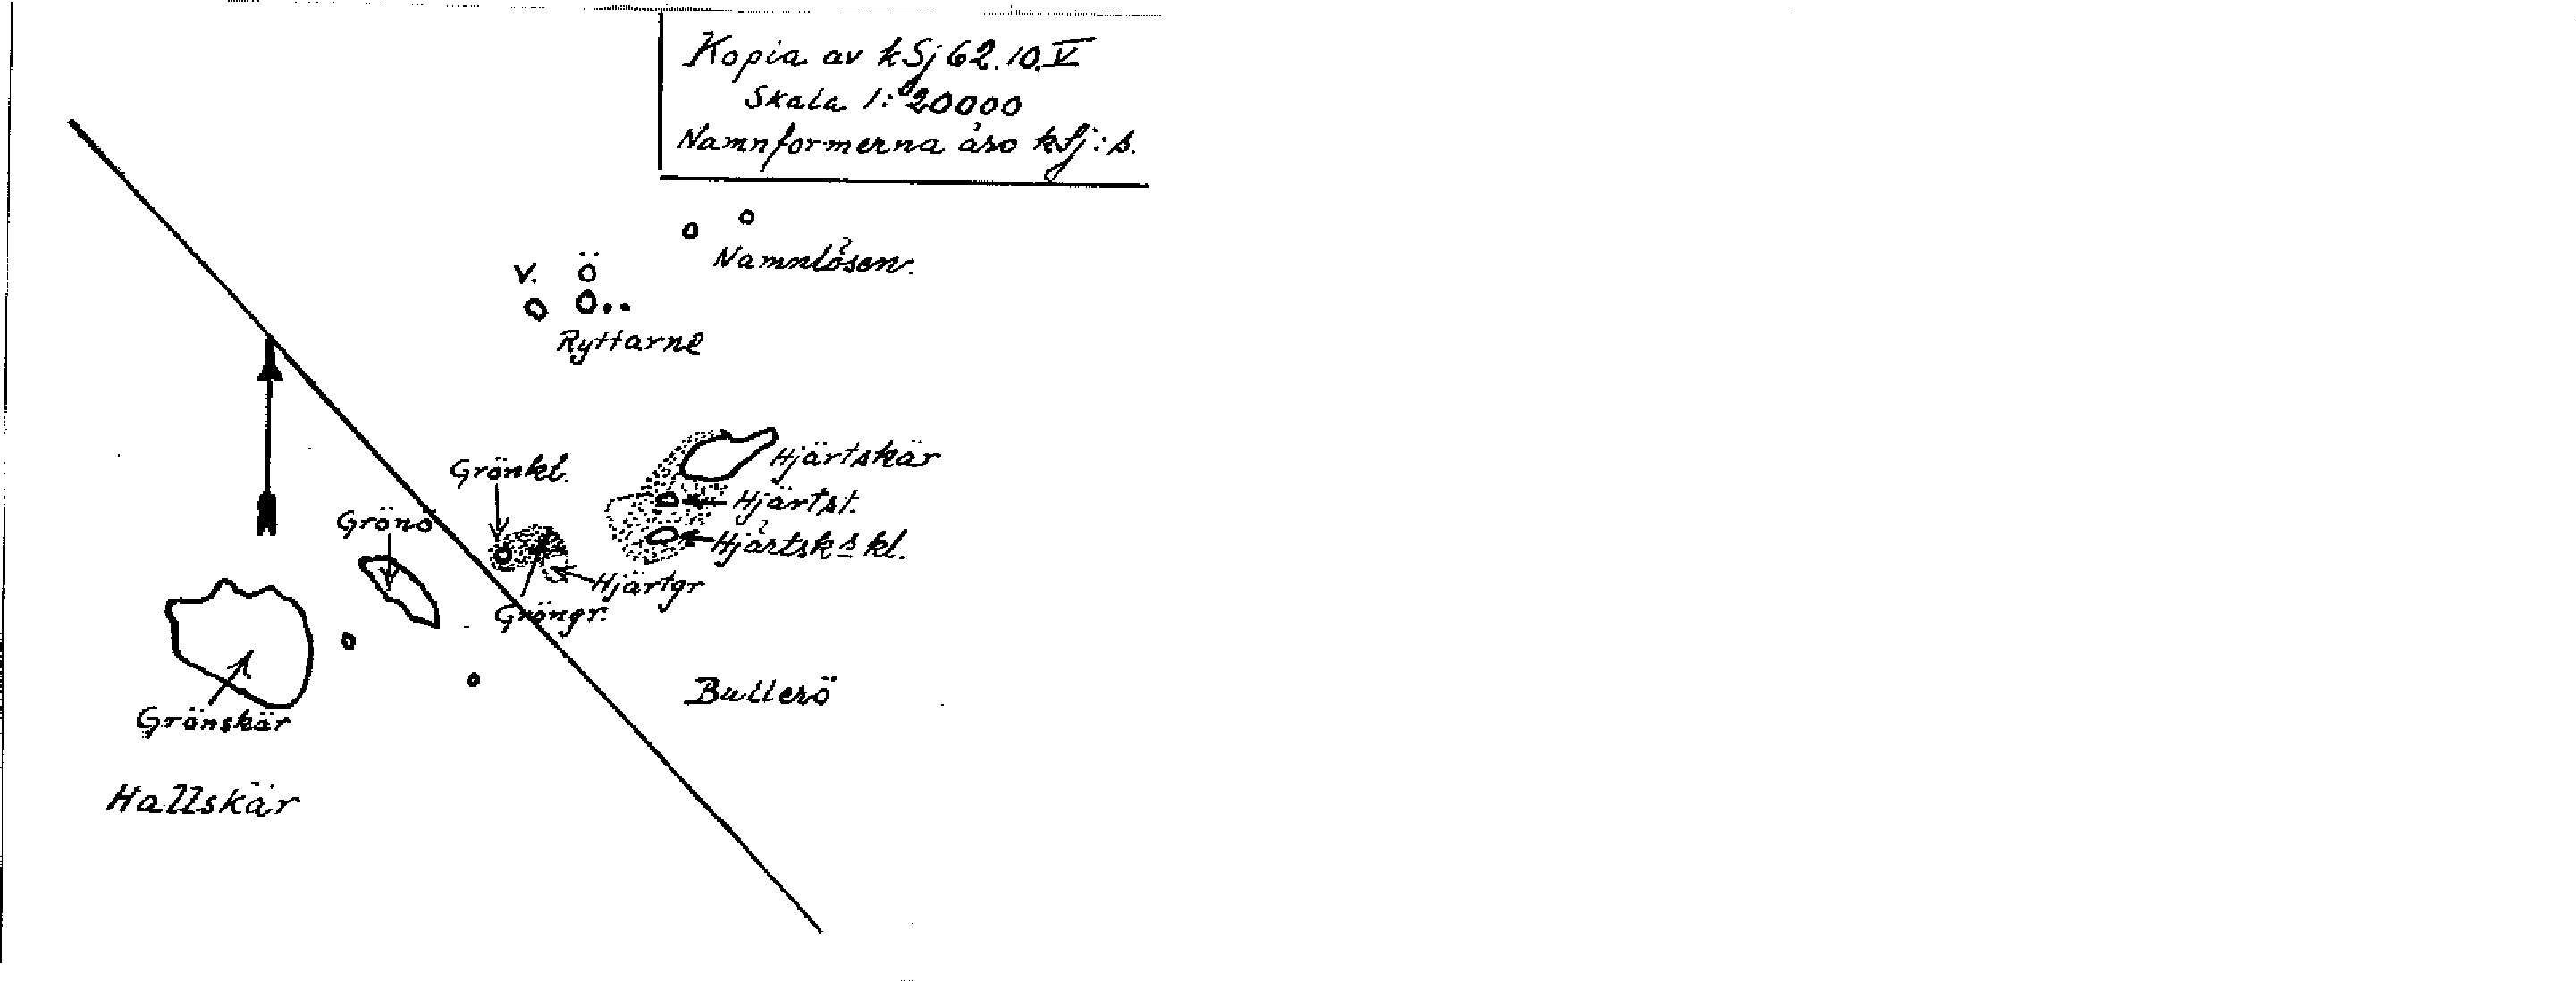 Kopia av kSj 62.10.V
Skala 1:20000
Namnformerna äro kSj:s.
Namnlösen.
V. Ö
Ryttarne
Hjärtskär
Grönkl.
Hjärtst.
Grönö
Hjärtsk:s kl.
Hjärtgr
Gröngr.
Bullerö
Grönskär
Hallskär